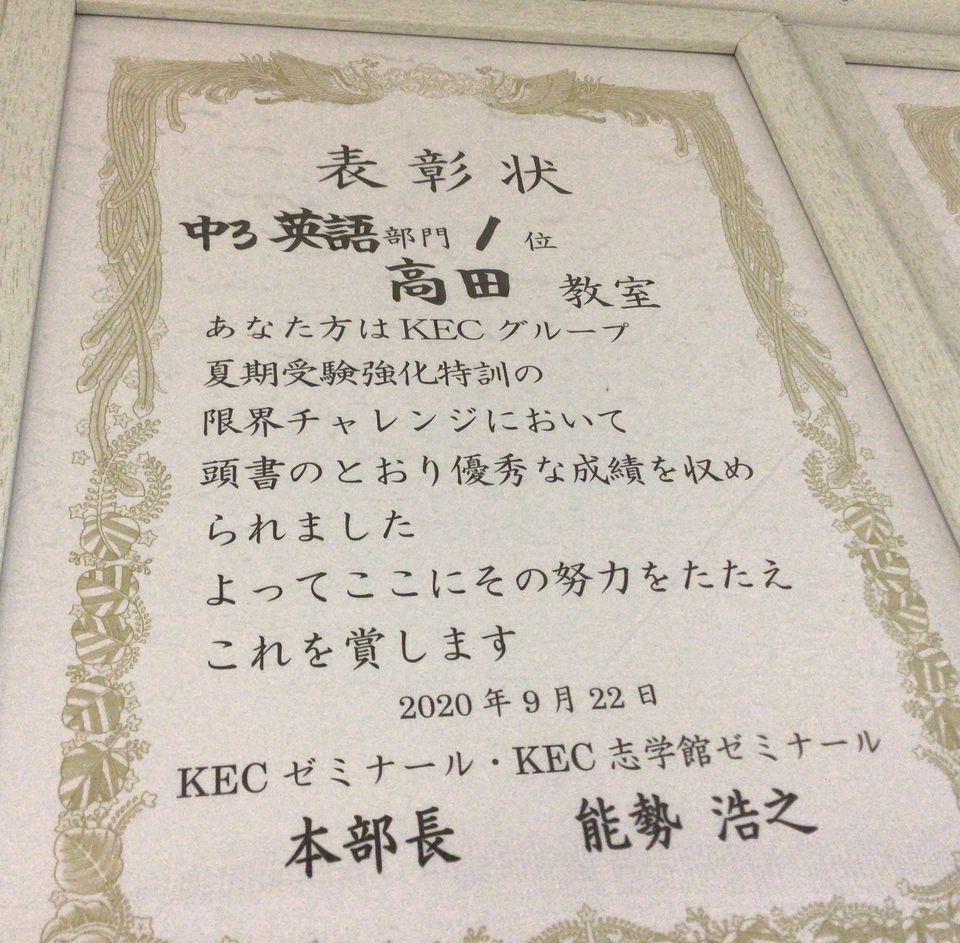 表彰状
中3英語部門 1位
高田 教室
あなた方はKECグループ
夏期受験強化特訓の
限界チャレンジにおいて
頭書のとおり優秀な成績を収め
られました
よってここにその努力をたたえ
これを賞します
2020年9月22日
KECゼミナール・KEC志学館ゼミナール
本部長 能勢 浩之